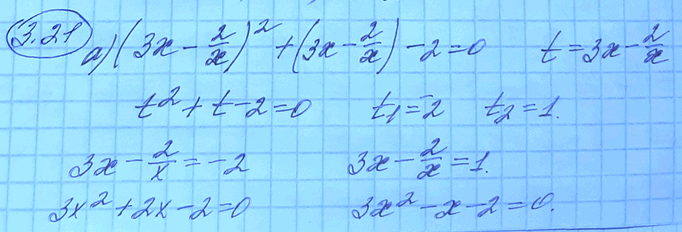 3.21 а) (3x - 2/x)² + (3x - 2/x) - 2 = 0 t = 3x - 2/x
t² + t - 2 = 0 t₁ = -2 t₂ = 1.
3x - 2/x = -2 3x - 2/x = 1.
3x² + 2x - 2 = 0 3x² - x - 2 = 0.